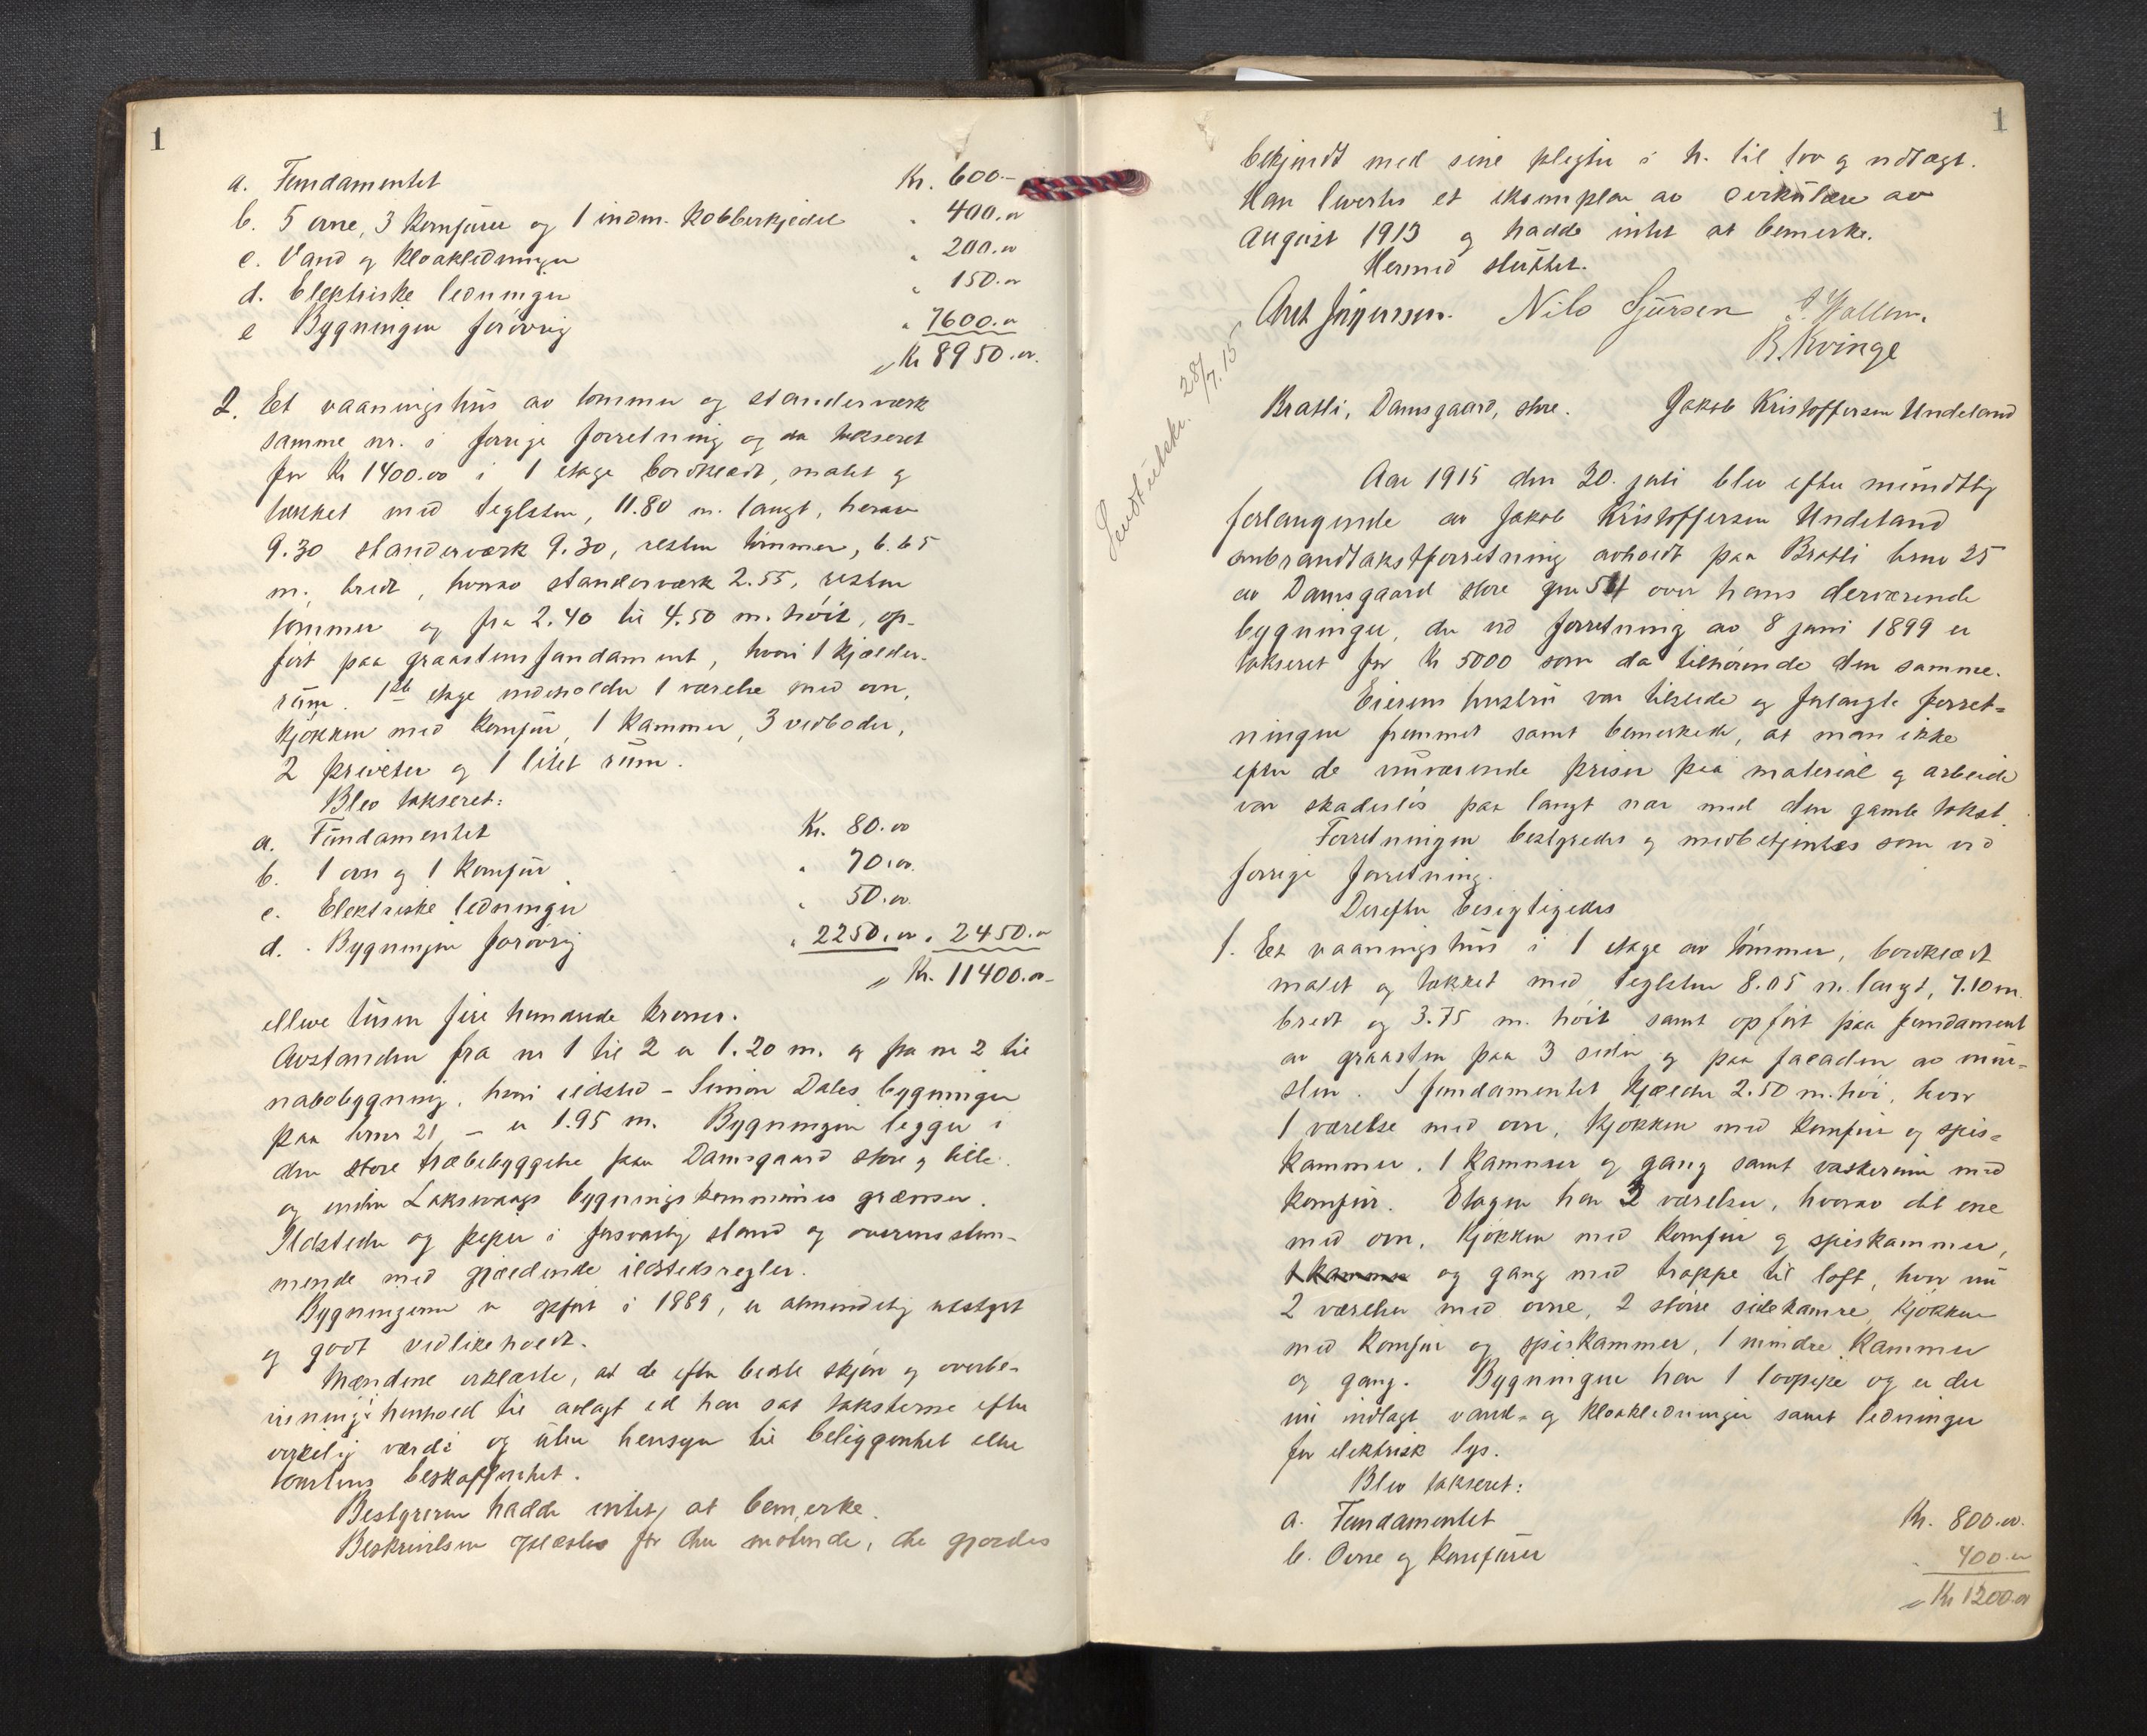 1
a. Fundamentet Kr. 600.-
b. 5 ovne, 3 komfurer og 1 indm. kobberkjedel " 400.00
c. Vand og kloakledninger " 200.00
d. Elektriske ledninger " 150.00
e Bygningen forøvrig " 7600.00
Kr 8950.00.
2. Et vaaningshus av tømmer og standerværk
samme nr. i forrige forretning og da takseret
for Kr 1400.00 i 1 etage bordklædt, malet og
tækket med teglsten, 11.80 m. langt, herav
9.30 standerværk 9.30, resten tømmer, 6.65
m. bredt, hvorav standerværk 2.55, resten
tømmer og fra 2.40 til 4.50 m. høit, op-
ført paa graastensfundament, hvori 1 kjælder-
rum. 1ste etage indeholder 1 værelse med ovn,
kjøkken med komfur, 1 kammer, 3 vedboder,
2 priveter og 1 litet rum.
Blev takseret:
a. Fundamentet Kr. 80.00
b. 1 ovn og 1 komfur " 70.00.
c. Elektriske ledninger " 50.00.
d. Bygningen forøvrig " 2250.00 " 2450.00
Kr. 11400.00-
elleve tusen fire hundrede kroner.
Avstanden fra nr 1 til 2 er 1.20 m. og fra nr 2 til
nabobygning, hvori ildsted - Simon Dales bygninger
paa brnr 21, - er 1.95 m. Bygningen ligger i
den store træbebyggelse paa Damsgaard store og lille
og inden Laksevaags bygningskommunes grænser.
Ildsteder og piper i forsvarlig stand og overensstem-
mende med gjældende ildstedsregler.
Bygningerne er opført i 1889, er almindelig utstyrt
og godt vedlikeholdt.
Mændene erklærte, at de efter bedste skjøn og overbe-
visning i henhold til avlagt ed har sat taksterne efter
virkelig værdi og uten hensyn til beliggenhet eller
tomtens beskaffenhet.
Bestyreren hadde intet at bemerke.
Beskrivelsen oplæstes for den møtende, der gjordes
1
bekjendt med sine plegter i h. til lov og vedtægt.
Han levertes et eksemplar av cirkulære av
august 1913 og hadde intet at bemerke.
Hermed sluttet.
Chrt Jørgensen. Nils Sjursen S. Wallem.
R. Kvinge
Sendt utskr. 28/7.15
Bratli, Damsgaard, store. Jakob Kristoffersen Undeland
Aar 1915 den 20. juli blev efter mundtlig
forlangende av Jakob Kristoffersen Undeland
ombrandtakstforretning avholdt paa Bratli brnr 25
av Damsgaard store gnr 51 over hans derværende
bygninger, der ved forretning av 8 juni 1899 er
takseret for Kr 5000 som da tilhørende den samme.
Eierens hustru var tilstede og forlangte forret-
ningen fremmet samt bemerkede, at man ikke
efter de nuværende priser paa material og arbeide
var skadesløs paa langt nær med den gamle takst.
Forretningen bestyredes og medbetjentes som ved
forrige forretning.
Derefter besigtigedes
1. Et vaaningshus i 1 etage av tømmer, bordklædt
malet og tækket med teglsten 8.05 m. langt, 7.10 m.
bredt og 3.75 m. høit samt opført paa fundament
av graasten paa 3 sider og paa facaden av mur-
sten. I fundamentet kjælder 2.50 m. høi, hvor
1 værelse med ovn, kjøkken med komfur og spis-
kammer, 1 kammer og gang samt vaskerum med
komfur. Etagen har 2 værelser, hvorav det ene
med ovn, kjøkken med komfur og spiskammer,
1 kammer og gang med trappe til loft, hvor nu
2 værelser med ovne, 2 større sidekamre, kjøkken
med komfur og spiskammer, 1 mindre kammer
og gang. Bygningen har 1 løvpipe og er der
nu indlagt vand- og kloakledninger samt ledninger
for elektrisk lys.
Blev takseret:
a. Fundamentet Kr. 800.00.
b. Ovne og komfurer " 400.00
Kr 1200.00